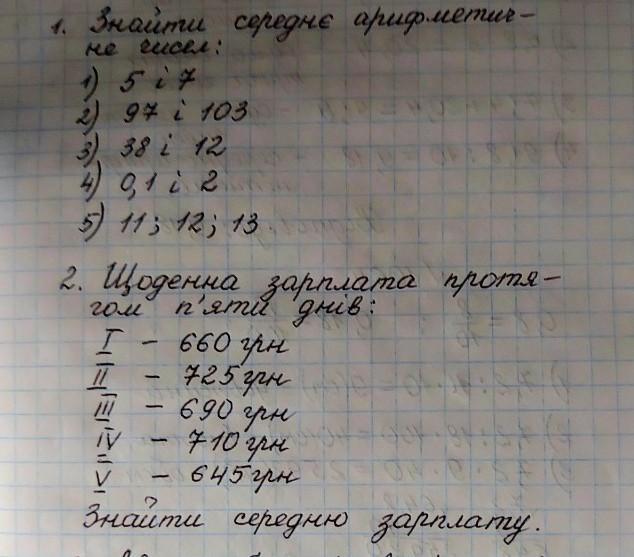 1. Знайти середнє арифметич-
не чисел:
1) 5 і 7
2) 97 і 103
3) 38 і 12
4) 0,1 і 2
5) 11; 12; 13
2. Щоденна зарплата протя-
гом п'яти днів:
I - 660 грн
II - 725 грн
III - 690 грн
IV - 710 грн
V - 645 грн
Знайти середню зарплату.